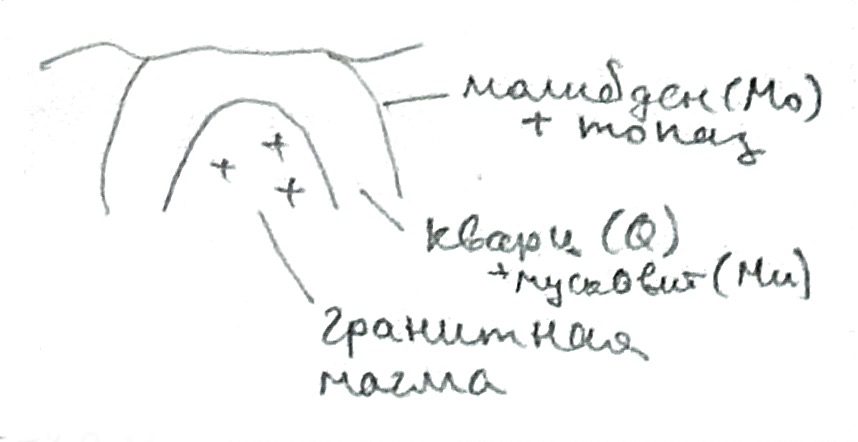 малибден (Mo)
+ топаз
кварц (Q)
+ мусковит (Mu)
гранитная
магма